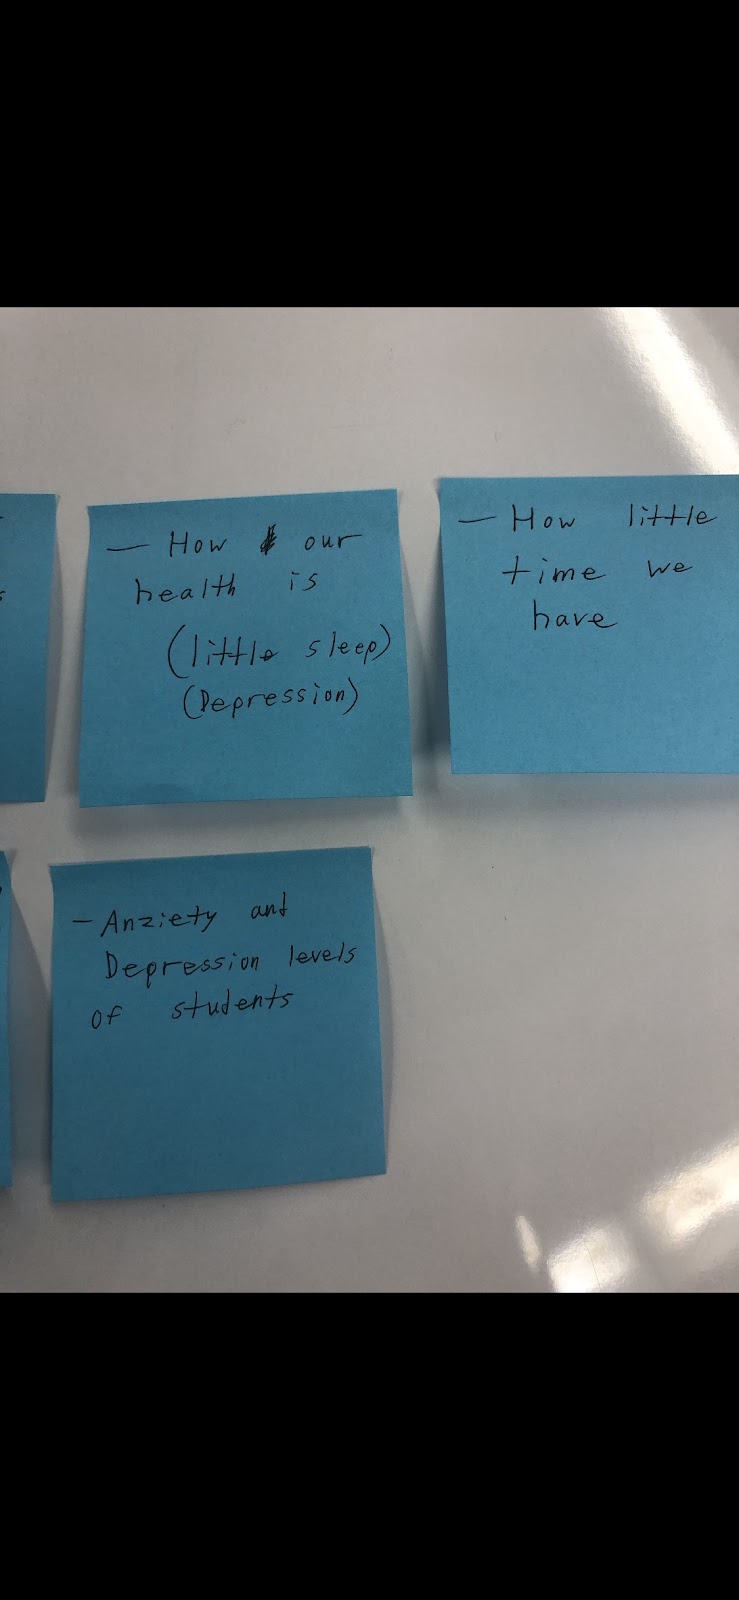 — How our
health is
(little sleep)
(Depression)
— How little
time we
have
- Anziety and
Depression levels
of students